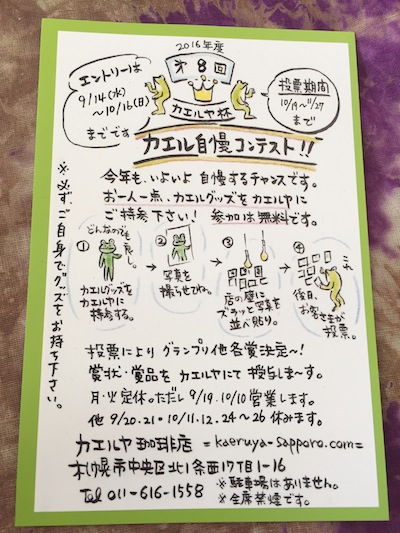 2016年度
第8回
カエルヤ杯
エントリーは
9/14(水)
〜10/16(日)
までです
投票期間
10/19〜11/27
まで
カエル自慢コンテスト!!
今年も、いよいよ自慢するチャンスです。
お一人一点、カエルグッズをカエルヤに
ご持参下さい! 参加は無料です。
※必ず、ご自身でグッズをお持ち下さい。
どんなのでも良し。
① カエルグッズを
カエルヤに
持参する。
② 写真を
撮らせてね。
③ 店の壁に
ズラッと写真を
並べ貼り。
④ これ
後日、
お客さまが
投票。
投票によりグランプリ他各賞決定〜!
賞状・賞品をカエルヤにて授与しま〜す。
月・火定休。ただし9/19.10/10営業します。
他 9/20.21・10/11.12.24〜26 休みます。
カエルヤ珈琲店 =kaeruya-sapporo.com=
札幌市中央区北1条西17丁目1-16
Tel 011-616-1558
※駐車場はありません。
※全席禁煙です。